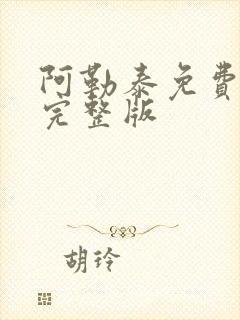 阿勒泰免费
完整版
胡玲